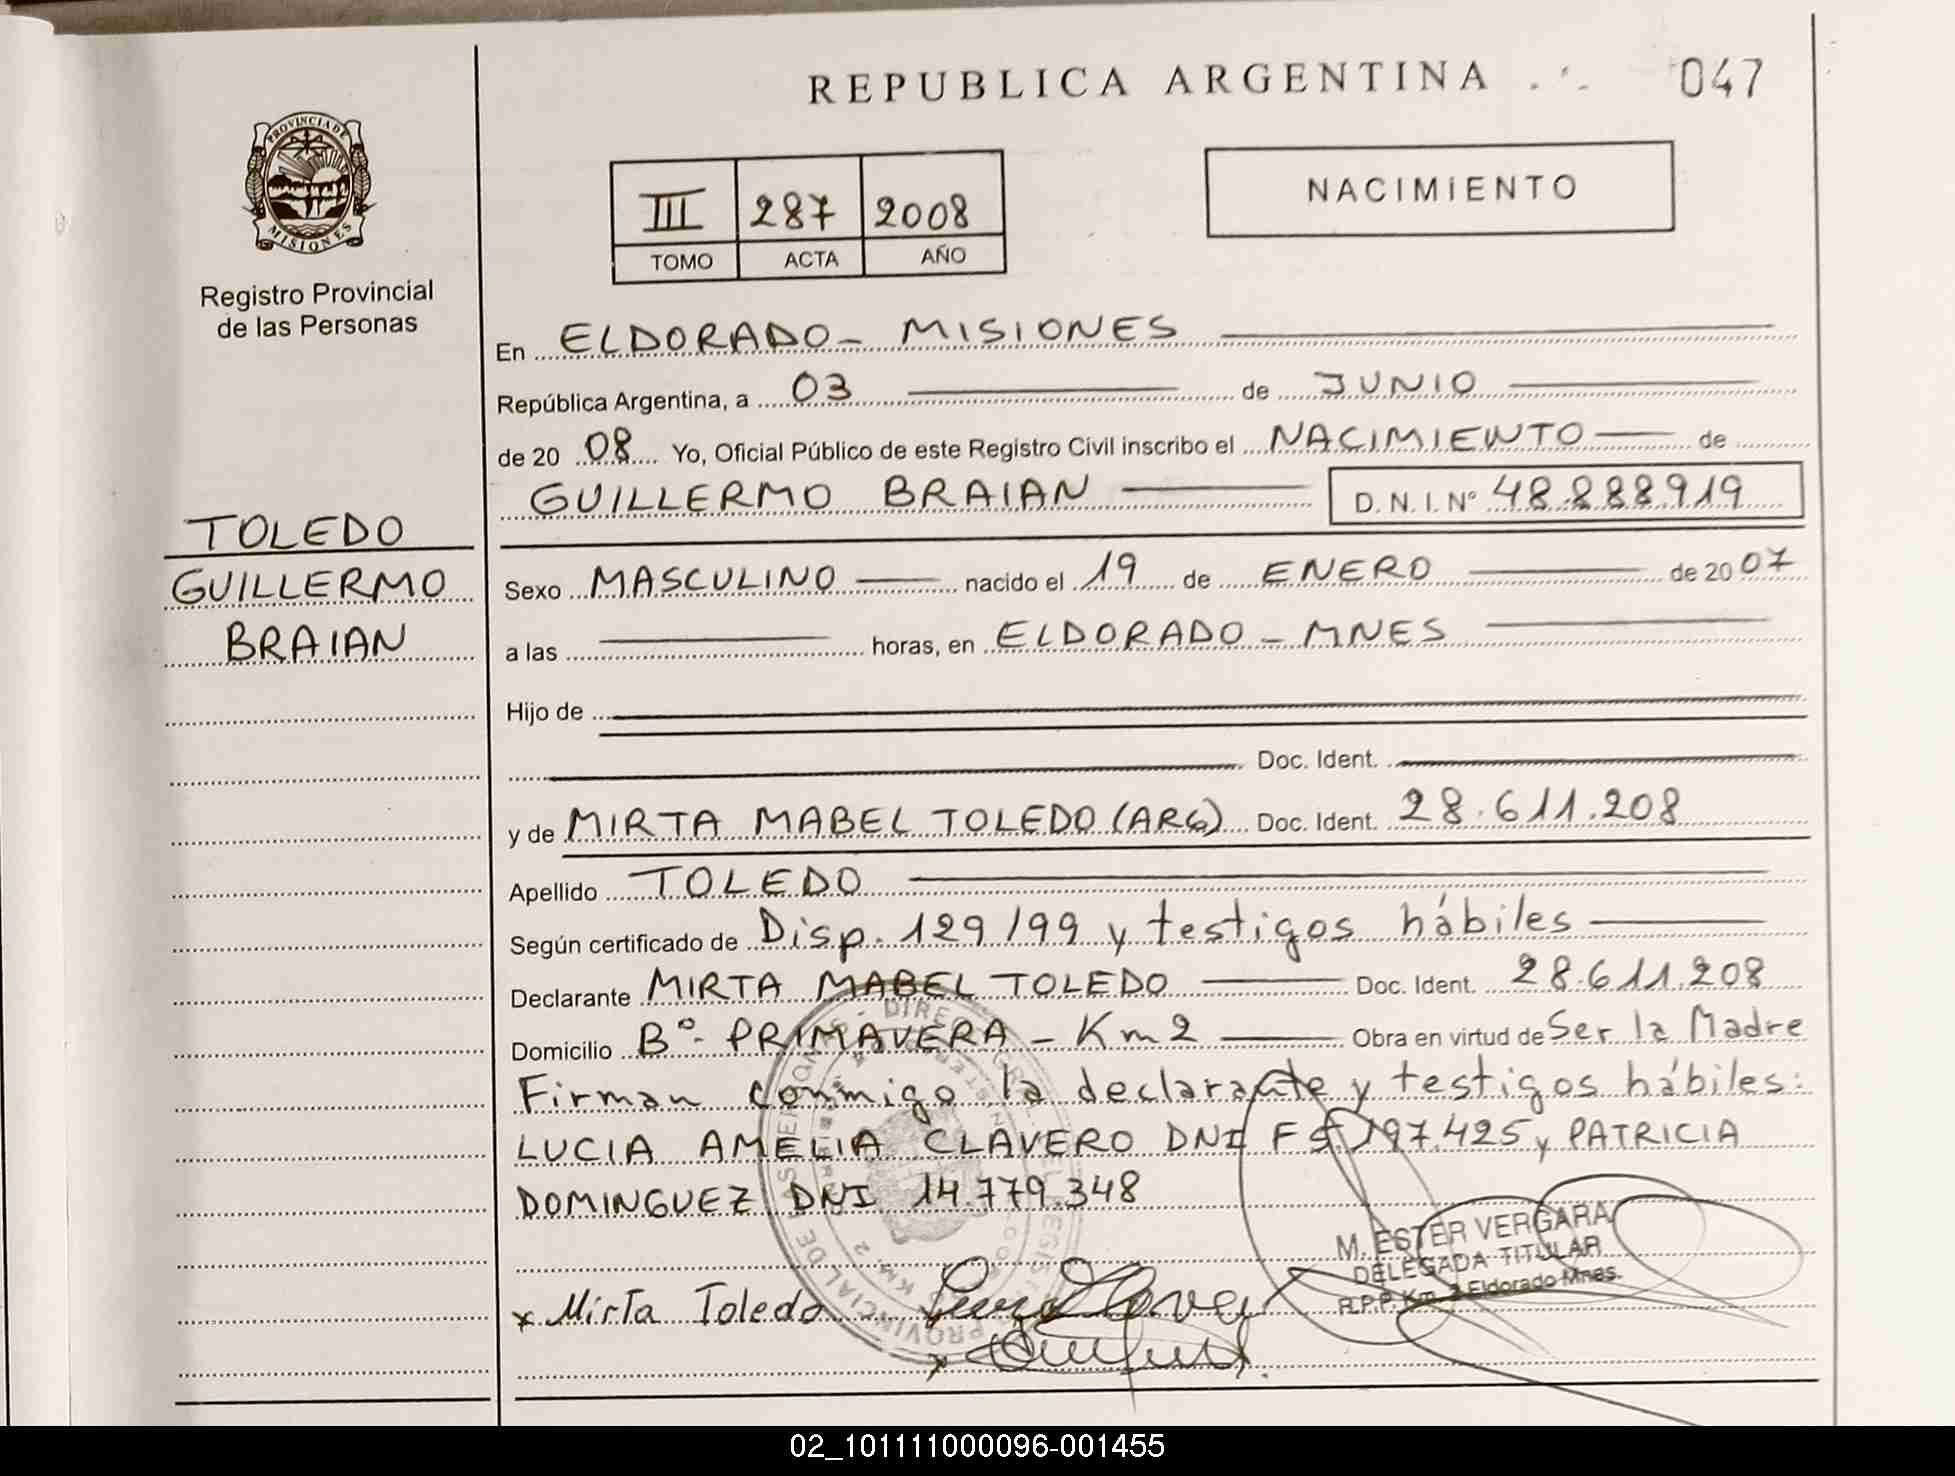 REPUBLICA ARGENTINA
047
PROVINCIA DE MISIONES
Registro Provincial
de las Personas
III 287 2008
TOMO ACTA AÑO
NACIMIENTO
En ELDORADO - MISIONES
República Argentina, a 03 de JUNIO
de 20 08 Yo, Oficial Público de este Registro Civil inscribo el NACIMIENTO de
GUILLERMO BRAIAN D. N. I. Nº 48.888.919
TOLEDO
GUILLERMO
BRAIAN
Sexo MASCULINO nacido el 19 de ENERO de 20 07
a las horas, en ELDORADO - MNES
Hijo de
Doc. Ident.
y de MIRTA MABEL TOLEDO (ARG) Doc. Ident. 28.611.208
Apellido TOLEDO
Según certificado de Disp. 129/99 y testigos hábiles
Declarante MIRTA MABEL TOLEDO Doc. Ident. 28.611.208
Domicilio Bº PRIMAVERA - Km 2 Obra en virtud de Ser la Madre
Firman conmigo la declarante y testigos hábiles:
LUCIA AMELIA CLAVERO DNI F 197.425 y PATRICIA
DOMINGUEZ DNI 14.779.348
M. ESTER VERGARA
DELEGADA TITULAR
R.P.P. Km. 2 Eldorado Mnes.
x Mirta Toledo
02_101111000096-001455